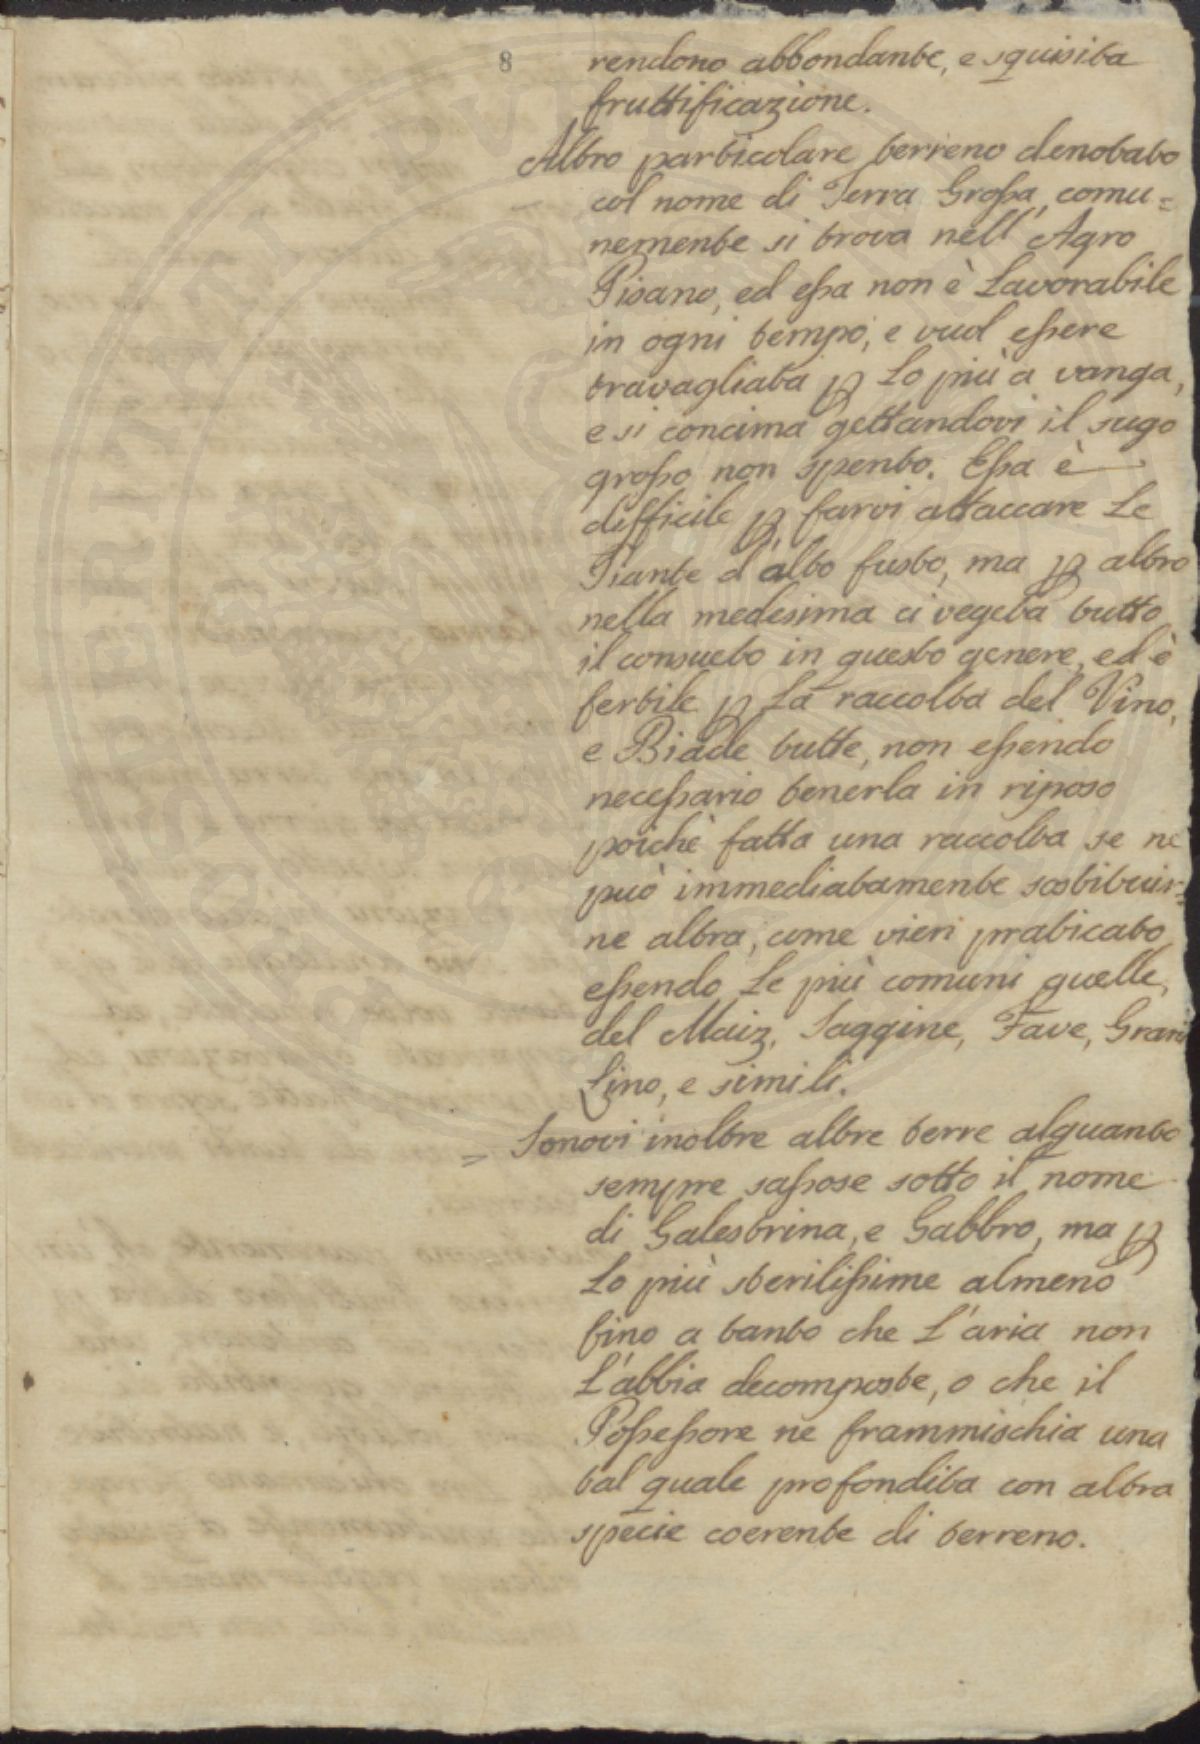 8
rendono abbondante, e squisita
fruttificazione.
Altro particolare terreno denotato
col nome di Terra Grossa, comu=
nemente si trova nell' Agro
Pisano, ed essa non è Lavorabile
in ogni tempo, e vuol essere
travagliata p Lo più a vanga,
e si concima gettandovi il sugo
grosso non spento. Essa è
difficile p farvi attaccare Le
Piante d'alto fusto, ma p altro
nella medesima ci vegeta tutto
il consueto in questo genere, ed è
fertile p La raccolta del Vino,
e Biade tutte, non essendo
necessario tenerla in riposo
poichè fatta una raccolta se ne
può immediatamente sostituir=
ne altra, come vien praticato,
essendo Le più comuni quelle,
del Maiz, Saggine, Fave, Grani
Lino, e simili.
= Sonovi inoltre altre terre alquanto
sempre sassose sotto il nome
di Galestrina, e Gabbro, ma p
Lo più sterilissime almeno
fino a tanto che L'aria non
L'abbia decomposte, o che il
Possessore ne frammischia una
tal quale profondita con altra
specie coerente di terreno.